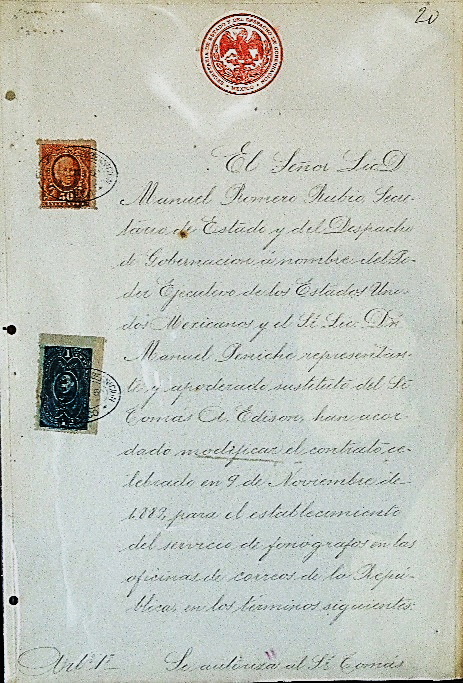 20
SECRETARIA DE ESTADO Y DEL DESPACHO DE GOBERNACION
MEXICO
El Señor Lic. D.
Manuel Romero Rubio, Secre-
tario de Estado y del Despacho
de Gobernacion á nombre del Po-
der Ejecutivo de los Estados Uni-
dos Mexicanos y el Sr. Lic. Dn.
Manuel Peniche representan-
te y apoderado sustituto del Sr.
Tomás A. Edison, han acor-
dado modificar el contrato ce-
lebrado en 9 de Noviembre de
para el establecimiento
del servicio de fonógrafos en las
oficinas de correos de la Repú-
blica, en los términos siguientes:
Art. 1º Se autoriza al Sr. Tomás
50
1